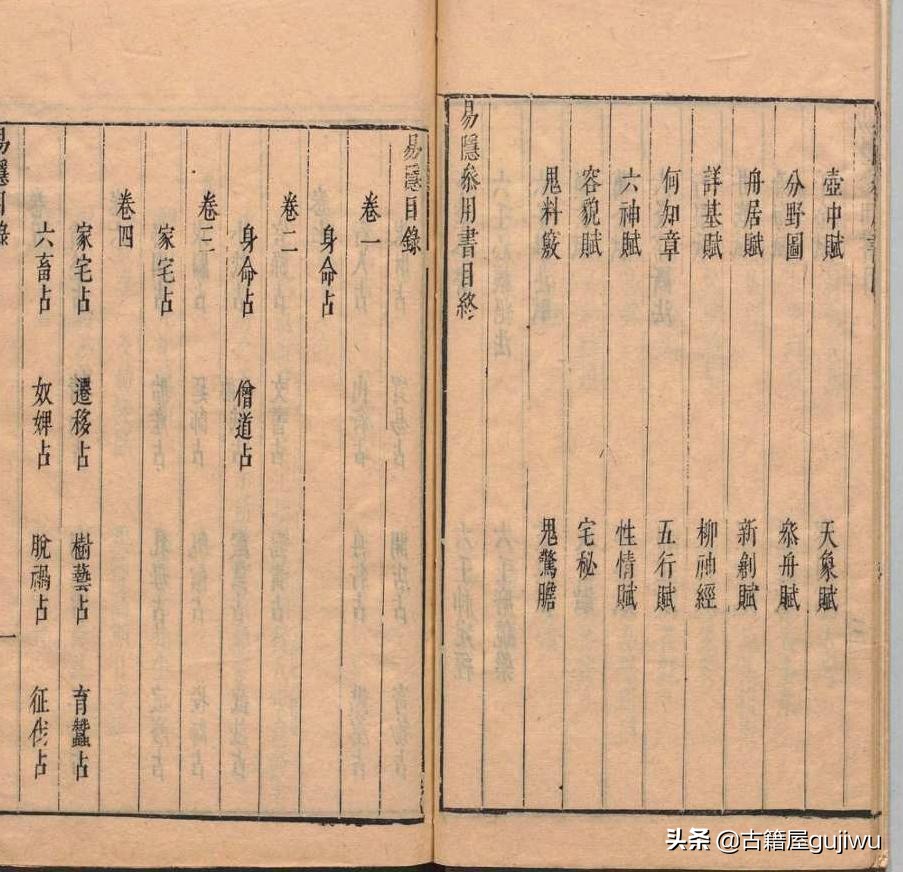 壺中賦 天象賦
分野圖 叅舟賦
舟居賦 新剏賦
詳基賦 柳神經
何知章 五行賦
六神賦 性情賦
容貌賦 宅秘
鬼料竅 鬼驚膽
易隱叅用書目終
易隱目錄
卷一
身命占
卷二
身命占 僧道占
卷三
家宅占
卷四
家宅占 遷移占 樹藝占 育蠶占
六畜占 奴婢占 脫禍占 征伐占
易隱目錄 一
头条 @古籍屋gujiwu